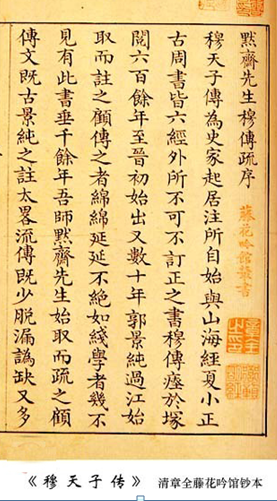 默齋先生穆傳疏序
藤花吟館叢書
穆天子傳為史家起居注所自始與山海經夏小正
古周書皆六經外所不可不訂正之書穆傳瘞於塚
閱六百餘年至晉初始出又數十年郭景純過江始
取而註之顧傳之者綿綿延延不絕如綫學者幾不
見有此書垂千餘年吾師默齋先生始取而疏之顧
傳文既古景純之註太畧流傳既少脫漏譌缺又多
《穆天子传》 清章全藤花吟馆钞本